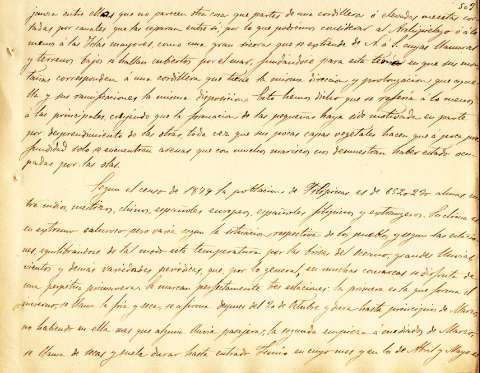 503
juran entre ellas que no parecen otra cosa que partes de una cordillera ó elevadas mesetas cor-
tadas por canales que las separan entre sí; por lo que podriamos considerar al Archipielago ó á lo
menos á las Yslas mayores, como una gran sierra que se extiende de N. á S. cuyas llanuras
y terrenos bajos se hallan cubiertos por el mar, fundándose para esto en que sus mon-
tañas corresponden á una cordillera que tiene la misma direccion y prolongacion que aque-
lla y sus ramificaciones la misma disposicion. Esto hemos dicho que se referia á lo menos
á las principales, creyendo que la formacion de las pequeñas haya sido motivada en parte
por desprendimiento de las otras, toda vez que sus pocas capas vegetales hacen que á poca pro-
fundidad solo se encuentren arenas que con muchos mariscos nos demuestran haber estado ocu-
padas por las olas.
Segun el censo de 1879 la poblacion de Filipinas es de almas en-
tre indios, mestizos, chinos, españoles europeos, españoles filipinos y extrangeros. Su clima es
en extremo caluroso pero varía segun la situacion respectiva de los pueblos y segun las estacio-
nes, equilibrándose de tal modo esta temperatura por las brisas del oceano, grandes lluvias,
vientos y demas variedades periódicas, que, por lo general, en muchas comarcas se disfruta de
una perpetua primavera. Se marcan perfectamente tres estaciones: la primera es la que forma el
invierno, se llama la fria y seca, se forma despues del 20 de Octubre y dura hasta principios de Marzo,
no habiendo en ella mas que alguna lluvia pasajera; la segunda empieza á mediados de Marzo,
se llama de secas y suele durar hasta entrado Junio en cuyo mes y en los de Abril y Mayo es